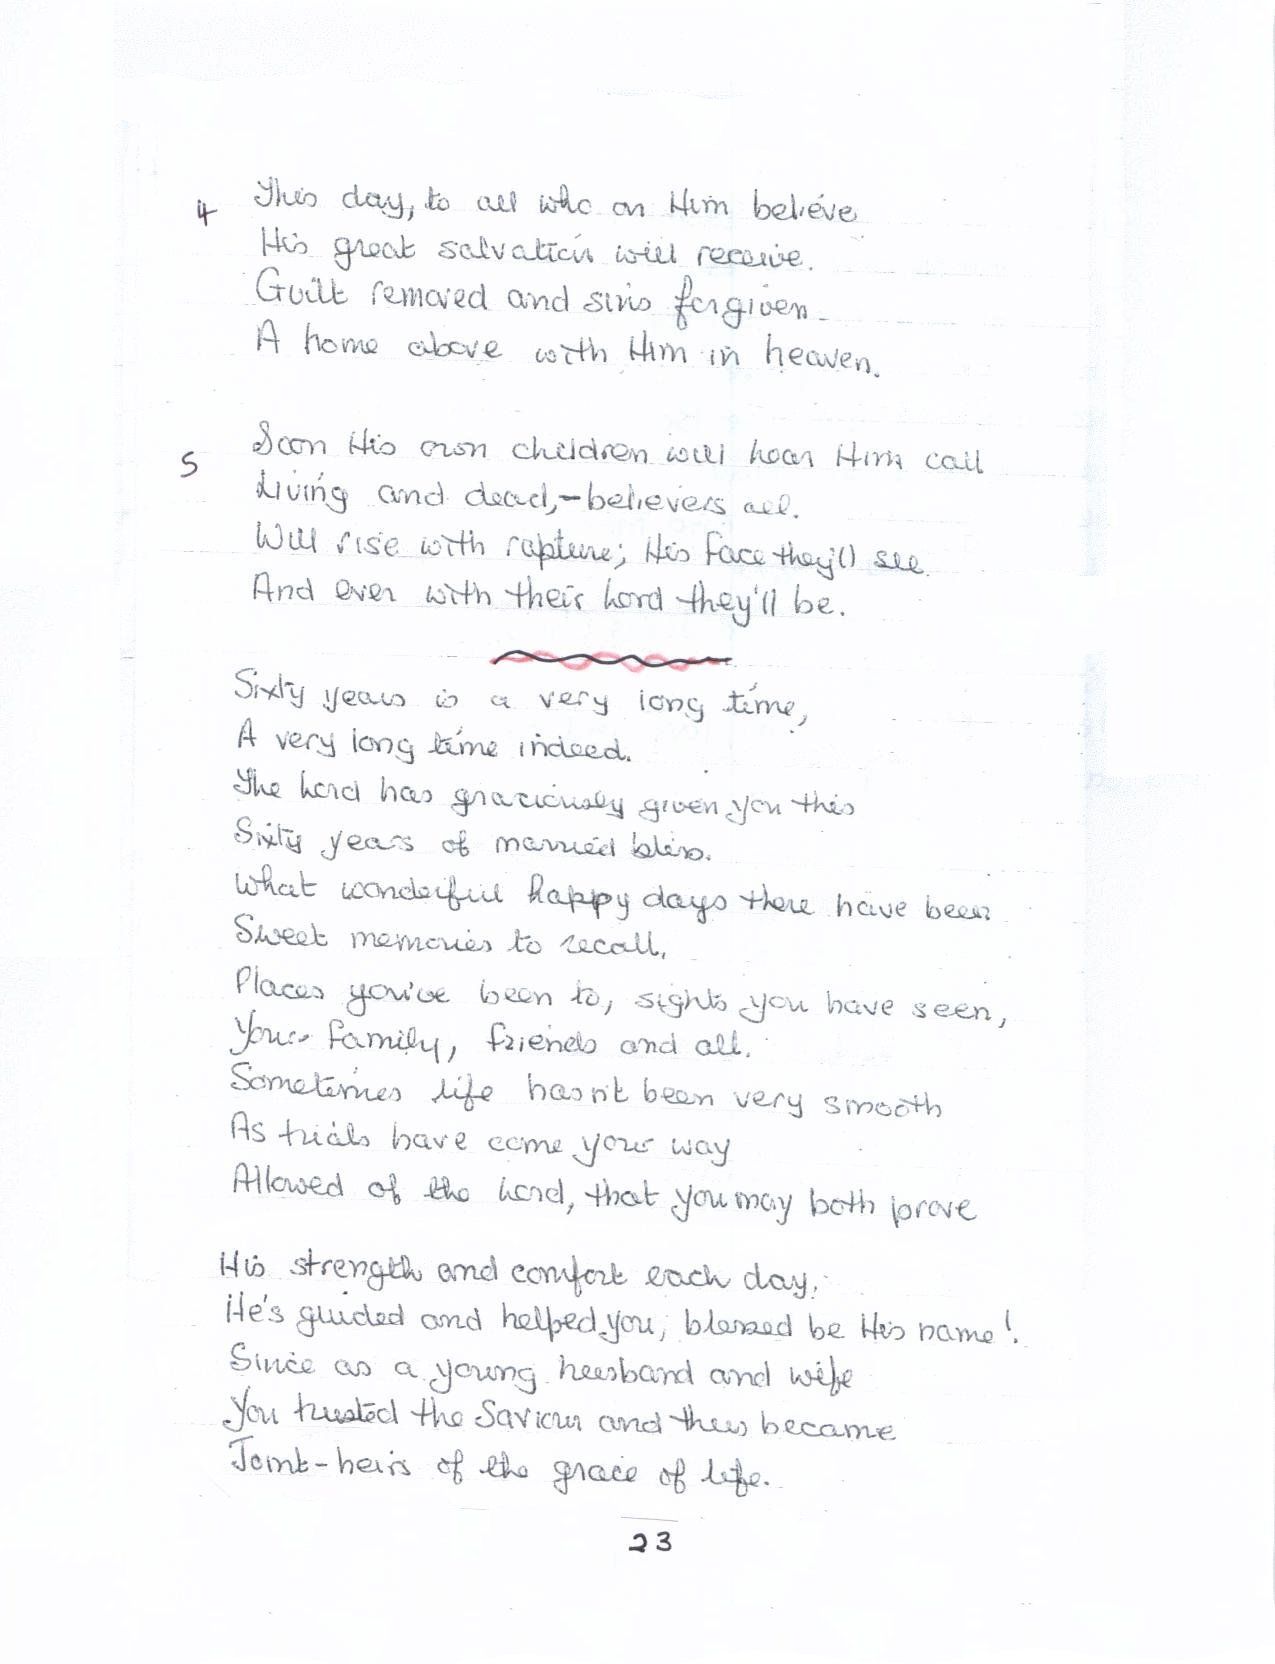 4 This day, to all who on Him believe
His great salvation will receive.
Guilt removed and sins forgiven -
A home above with Him in heaven.
5 Soon His own children will hear Him call
Living and dead, - believers all.
Will rise with rapture; His face they'll see.
And ever with their Lord they'll be.
Sixty years is a very long time,
A very long time indeed.
The Lord has graciously given you this
Sixty years of married bliss.
What wonderful happy days there have been
Sweet memories to recall,
Places you've been to, sights you have seen,
Your family, friends and all.
Sometimes life hasn't been very smooth
As trials have come your way
Allowed of the Lord, that you may both prove
His strength and comfort each day.
He's guided and helped you, blessed be His name!
Since as a young husband and wife
You trusted the Saviour and thus became
Joint-heirs of the grace of life.
23